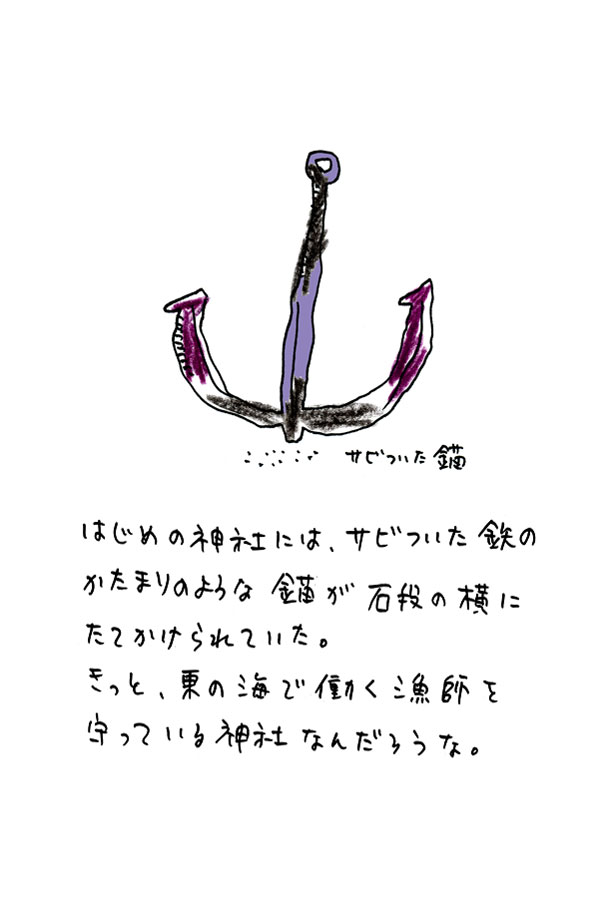 サビついた錨
はじめの神社には、サビついた鉄の
かたまりのような 錨が石段の横に
たてかけられていた。
きっと、東の海で働く漁師を
守っている神社なんだろうな。